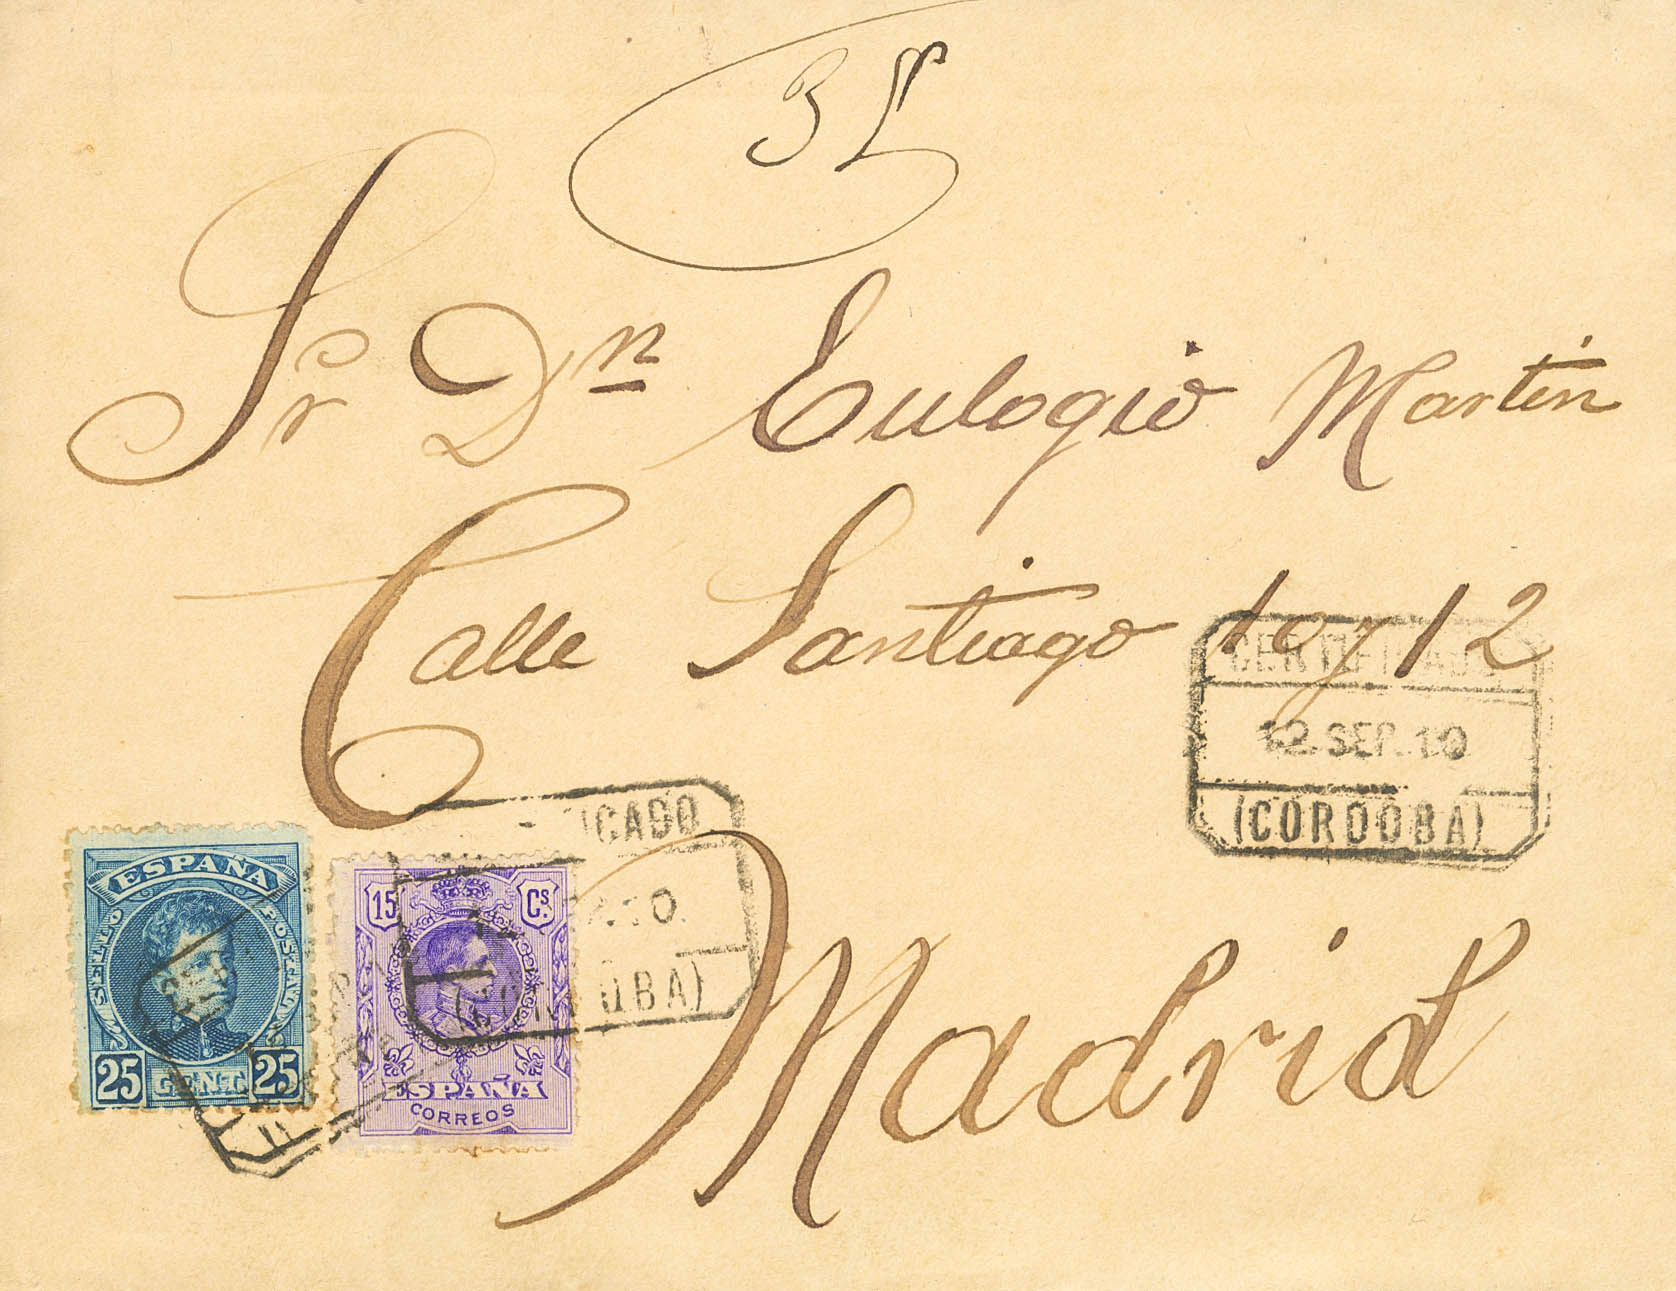 Sr Dn Eulogio Martin
Calle Santiago 10 y 12
Madrid
CERTIFICADO
12 SEP. 10
(CORDOBA)
ESPAÑA
SELLO POSTAL
25 CENT. 25
15 Cs
ESPAÑA
CORREOS